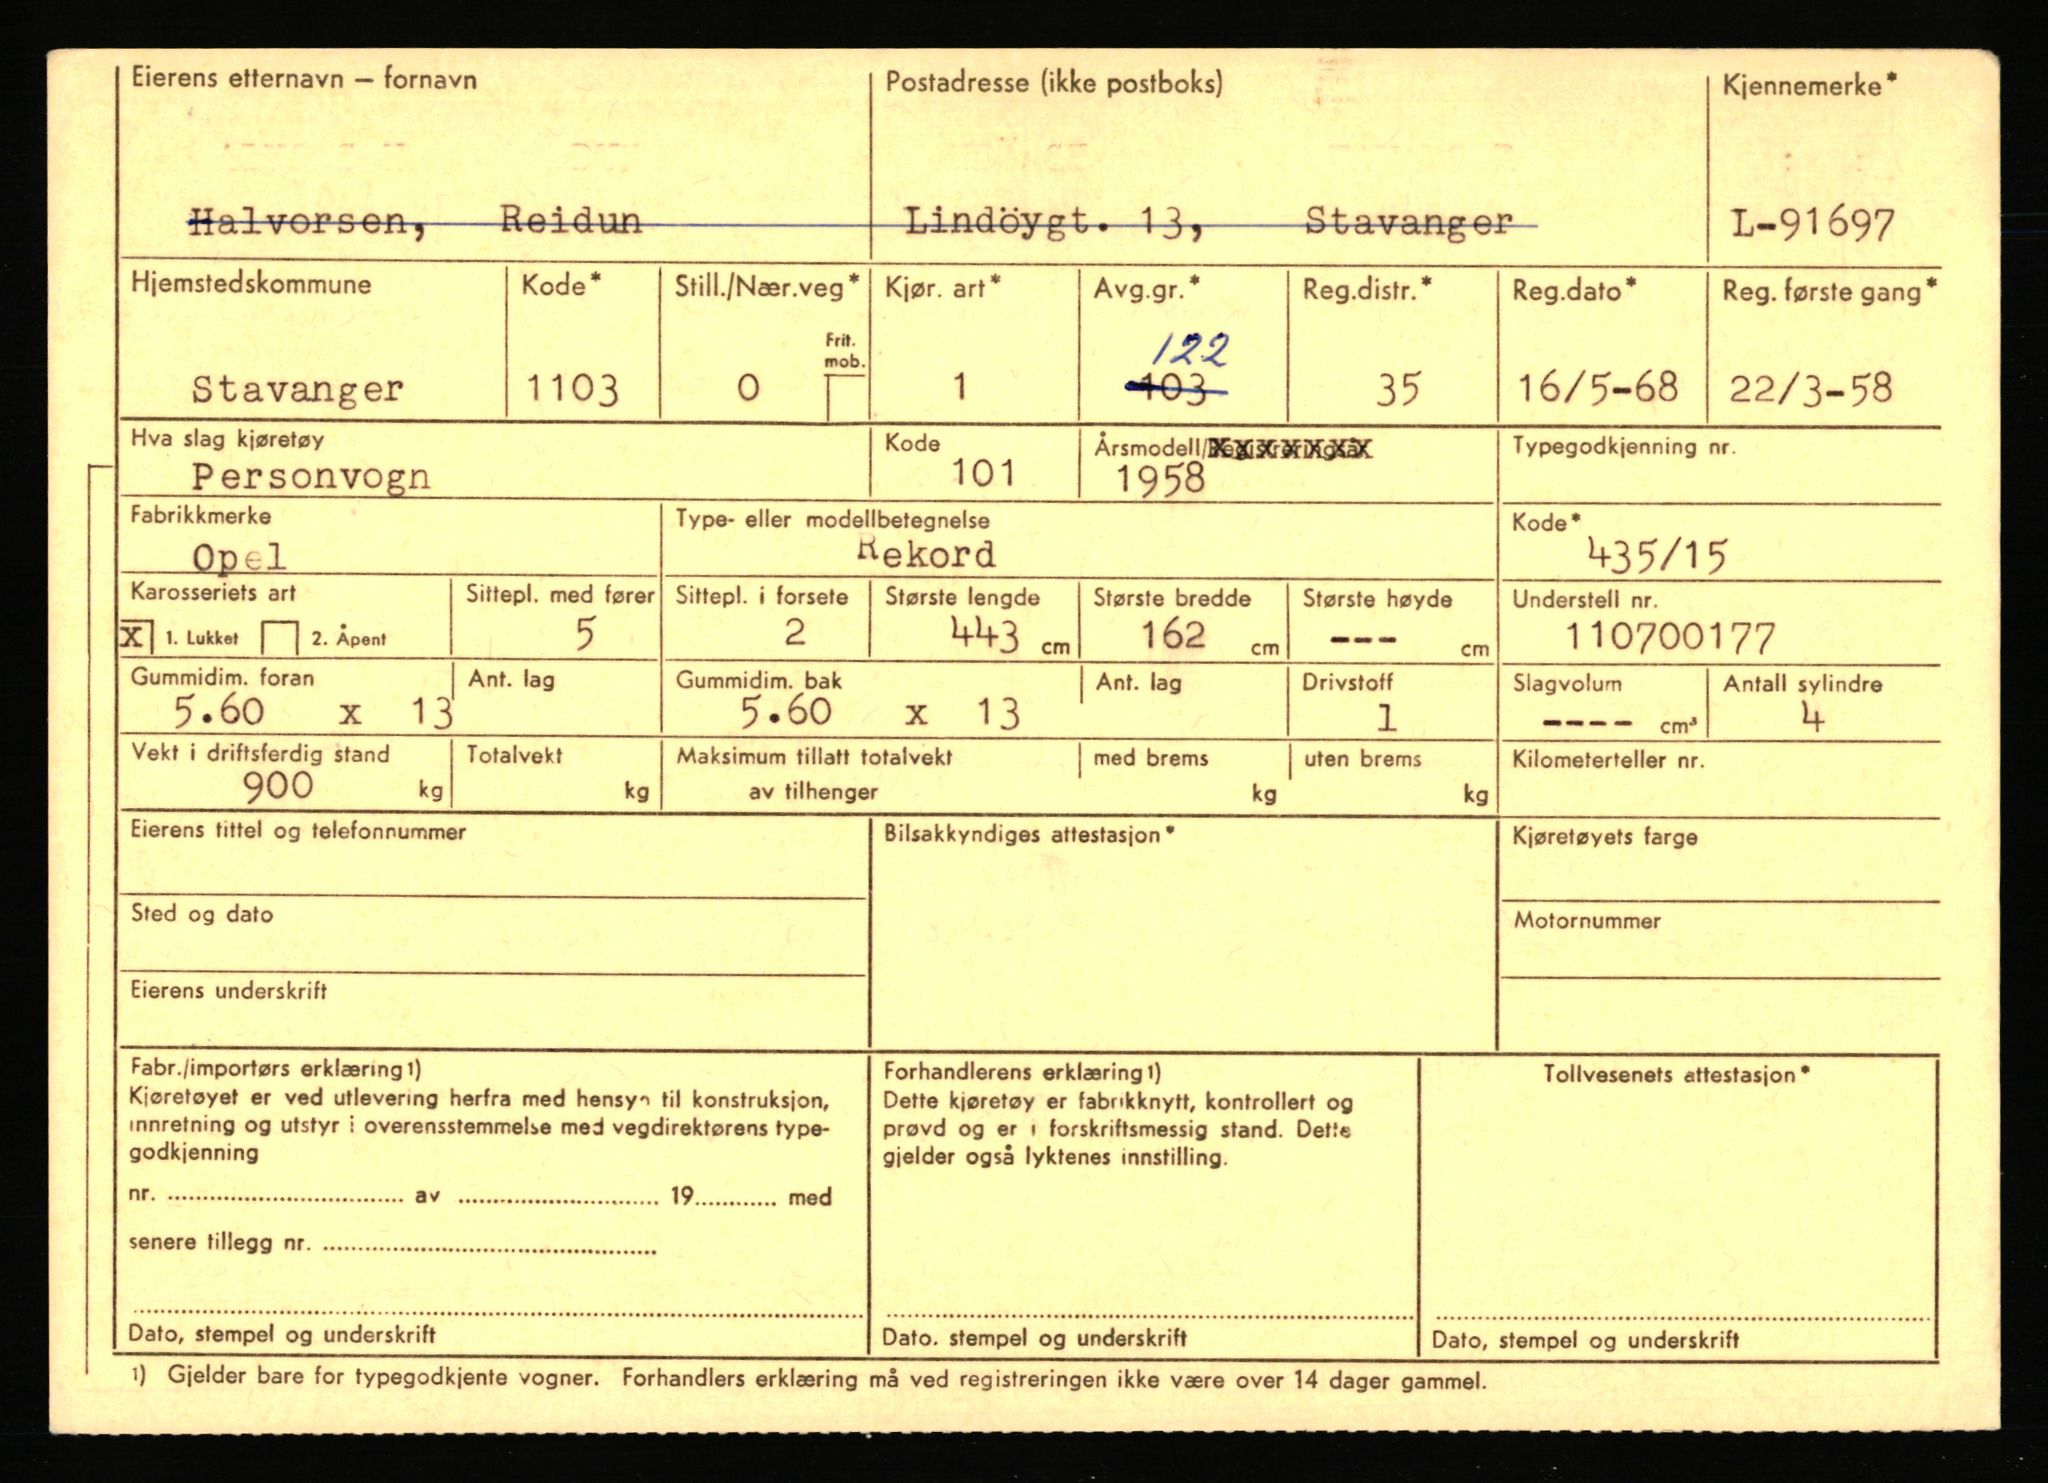 Eierens etternavn – fornavn Postadresse (ikke postboks) Kjennemerke*
Halvorsen, Reidun Lindöygt. 13, Stavanger L-91697
Hjemstedskommune Kode* Still./Nær.veg* Kjør. art* Avg.gr.* Reg.distr.* Reg.dato* Reg. første gang*
Frit. mob. 122
Stavanger 1103 0 1 103 35 16/5-68 22/3-58
Hva slag kjøretøy Kode Årsmodell/Registreringsår Typegodkjenning nr.
Personvogn 101 1958
Fabrikkmerke Type- eller modellbetegnelse Kode*
Opel Rekord 435/15
Karosseriets art Sittepl. med fører Sittepl. i forsete Største lengde Største bredde Største høyde Understell nr.
X 1. Lukket 2. Åpent 5 2 443 cm 162 cm --- cm 110700177
Gummidim. foran Ant. lag Gummidim. bak Ant. lag Drivstoff Slagvolum Antall sylindre
5.60 x 13 5.60 x 13 1 ---- cm³ 4
Vekt i driftsferdig stand Totalvekt Maksimum tillatt totalvekt med brems uten brems Kilometerteller nr.
900 kg kg av tilhenger kg kg
Eierens tittel og telefonnummer Bilsakkyndiges attestasjon* Kjøretøyets farge
Sted og dato Motornummer
Eierens underskrift
Fabr./importørs erklæring 1) Forhandlerens erklæring 1) Tollvesenets attestasjon*
Kjøretøyet er ved utlevering herfra med hensyn til konstruksjon, Dette kjøretøy er fabrikknytt, kontrollert og
innretning og utstyr i overensstemmelse med vegdirektørens type- prøvd og er i forskriftsmessig stand. Dette
godkjenning gjelder også lyktenes innstilling.
nr. .......... av .......... 19.......... med
senere tillegg nr. ..........
Dato, stempel og underskrift Dato. stempel og underskrift Dato, stempel og underskrift
1) Gjelder bare for typegodkjente vogner. Forhandlers erklæring må ved registreringen ikke være over 14 dager gammel.